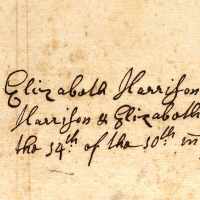 Elizabeth Harrison
Harrison & Elizabeth
the 14th. of the 10th. m